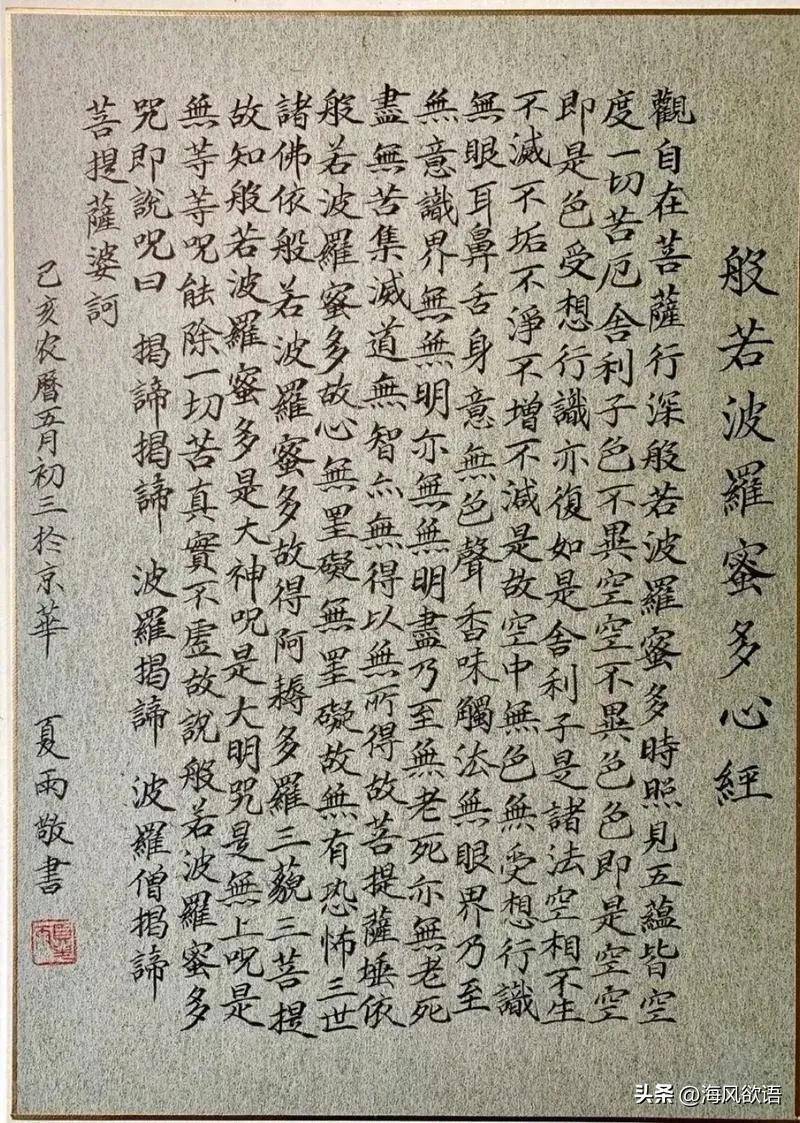 般若波羅蜜多心經
觀自在菩薩行深般若波羅蜜多時照見五蘊皆空
度一切苦厄舍利子色不異空空不異色色即是空空
即是色受想行識亦復如是舍利子是諸法空相不生
不滅不垢不淨不增不減是故空中無色無受想行識
無眼耳鼻舌身意無色聲香味觸法無眼界乃至
無意識界無無明亦無無明盡乃至無老死亦無老死
盡無苦集滅道無智亦無得以無所得故菩提薩埵依
般若波羅蜜多故心無罣礙無罣礙故無有恐怖三世
諸佛依般若波羅蜜多故得阿耨多羅三藐三菩提
故知般若波羅蜜多是大神咒是大明咒是無上咒是
無等等咒能除一切苦真實不虛故說般若波羅蜜多
咒即說咒曰 揭諦揭諦 波羅揭諦 波羅僧揭諦
菩提薩婆訶
己亥农曆五月初三於京華 夏雨敬書
头条 @海风欲语